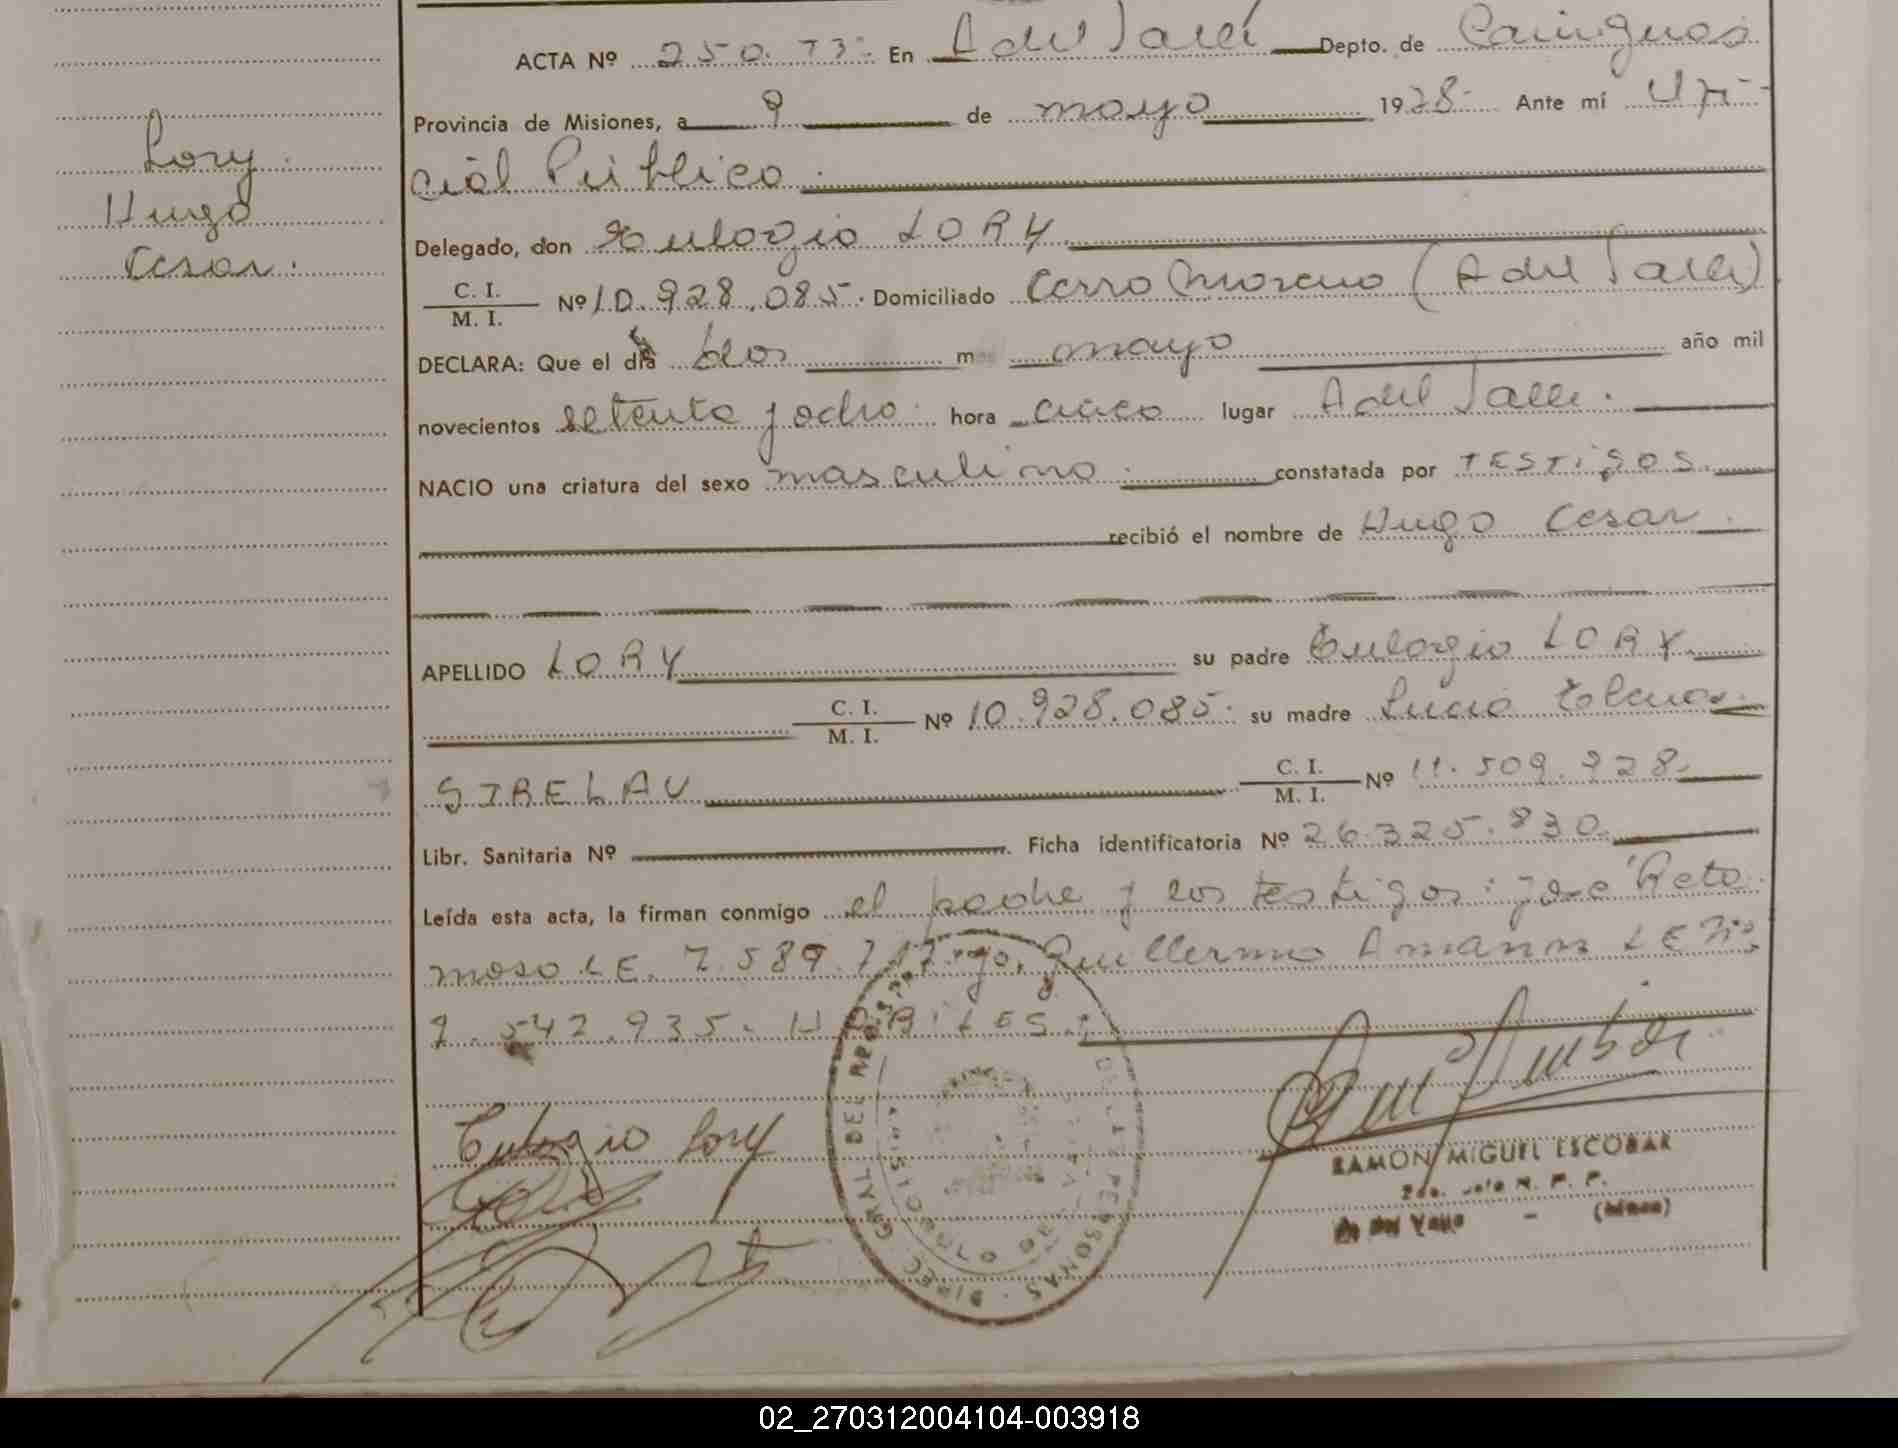 Lory.
Hugo
Cesar.
ACTA Nº 250. T3º. En A del Valle Depto. de Cainguas
Provincia de Misiones, a 9 de mayo 1978 Ante mí Ofi-
cial Público
Delegado, don Eulogio LORY
C. I.
M. I. Nº 10.928.085. Domiciliado Cerro Moreno (A del Valle)
DECLARA: Que el día dos mes mayo año mil
novecientos setenta y ocho hora cinco lugar A del Valle.
NACIO una criatura del sexo masculino constatada por TESTIGOS
recibió el nombre de Hugo Cesar
APELLIDO LORY su padre Eulogio LORY
C. I.
M. I. Nº 10.928.085. su madre Lucia
STRELAU C. I.
M. I. Nº 11.509.928
Libr. Sanitaria Nº Ficha identificatoria Nº 26.325.830
Leída esta acta, la firman conmigo el padre y los testigos: jose Reto
moso L E. 7.589. Guillermo Amann L E Nº
7.542.935. HABILES.
Eulogio Lory
DIREC. GRAL DEL REG. DE LAS PERSONAS
RAMON MIGUEL ESCOBAR
R. P. P.
A del Valle - (Mnes)
02_270312004104-003918